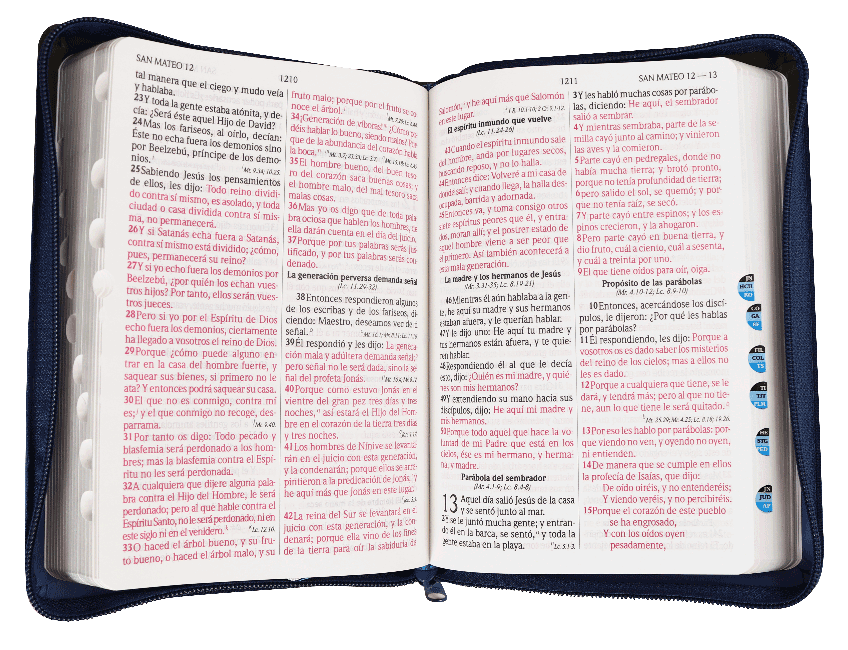 SAN MATEO 12
1210
tal manera que el ciego y mudo veía
y hablaba.
23 Y toda la gente estaba atónita, y de-
cía: ¿Será éste aquel Hijo de David?
24 Mas los fariseos, al oírlo, decían:
Éste no echa fuera los demonios sino
por Beelzebú, príncipe de los demo-
nios.
Mt. 9.34; 10.25.
25 Sabiendo Jesús los pensamientos
de ellos, les dijo: Todo reino dividi-
do contra sí mismo, es asolado, y toda
ciudad o casa dividida contra sí mis-
ma, no permanecerá.
26 Y si Satanás echa fuera a Satanás,
contra sí mismo está dividido; ¿cómo,
pues, permanecerá su reino?
27 Y si yo echo fuera los demonios por
Beelzebú, ¿por quién los echan vues-
tros hijos? Por tanto, ellos serán vues-
tros jueces.
28 Pero si yo por el Espíritu de Dios
echo fuera los demonios, ciertamente
ha llegado a vosotros el reino de Dios.
29 Porque ¿cómo puede alguno en-
trar en la casa del hombre fuerte, y
saquear sus bienes, si primero no le
ata? Y entonces podrá saquear su casa.
30 El que no es conmigo, contra mí
es; y el que conmigo no recoge, des-
parrama.
Mr. 9.40.
31 Por tanto os digo: Todo pecado y
blasfemia será perdonado a los hom-
bres; mas la blasfemia contra el Espí-
ritu no les será perdonada.
32 A cualquiera que dijere alguna pala-
bra contra el Hijo del Hombre, le será
perdonado; pero al que hable contra el
Espíritu Santo, no le será perdonado, ni en
este siglo ni en el venidero.
Lc. 12.10.
33 O haced el árbol bueno, y su fru-
to bueno, o haced el árbol malo, y su
fruto malo; porque por el fruto se co-
noce el árbol.
34 ¡Generación de víboras! ¿Cómo po-
déis hablar lo bueno, siendo malos? Por-
que de la abundancia del corazón habla
la boca.
35 El hombre bueno, del buen teso-
ro del corazón saca buenas cosas; y
el hombre malo, del mal tesoro saca
malas cosas.
36 Mas yo os digo que de toda pala-
bra ociosa que hablen los hombres, de
ella darán cuenta en el día del juicio.
37 Porque por tus palabras serás jus-
tificado, y por tus palabras serás con-
denado.
La generación perversa demanda señal
(Lc. 11.29-32)
38 Entonces respondieron algunos
de los escribas y de los fariseos, di-
ciendo: Maestro, deseamos ver de ti
señal.
39 Él respondió y les dijo: La genera-
ción mala y adúltera demanda señal;
pero señal no le será dada, sino la se-
ñal del profeta Jonás.
40 Porque como estuvo Jonás en el
vientre del gran pez tres días y tres
noches, así estará el Hijo del Hom-
bre en el corazón de la tierra tres días
y tres noches.
41 Los hombres de Nínive se levanta-
rán en el juicio con esta generación,
y la condenarán; porque ellos se arre-
pintieron a la predicación de Jonás, y
he aquí más que Jonás en este lugar.
42 La reina del Sur se levantará en el
juicio con esta generación, y la con-
denará; porque ella vino de los fines
de la tierra para oír la sabiduría de
1211
SAN MATEO 12—13
Salomón, y he aquí más que Salomón
en este lugar.
El espíritu inmundo que vuelve
(Lc. 11.24-26)
43 Cuando el espíritu inmundo sale
del hombre, anda por lugares secos,
buscando reposo, y no lo halla.
44 Entonces dice: Volveré a mi casa de
donde salí; y cuando llega, la halla des-
ocupada, barrida y adornada.
45 Entonces va, y toma consigo otros
siete espíritus peores que él, y entra-
dos, moran allí; y el postrer estado de
aquel hombre viene a ser peor que
el primero. Así también acontecerá a
esta mala generación.
La madre y los hermanos de Jesús
(Mr. 3.31-35; Lc. 8.19-21)
46 Mientras él aún hablaba a la gen-
te, he aquí su madre y sus hermanos
estaban afuera, y le querían hablar.
47 Y le dijo uno: He aquí tu madre y
tus hermanos están afuera, y te quie-
ren hablar.
48 Respondiendo él al que le decía
esto, dijo: ¿Quién es mi madre, y quié-
nes son mis hermanos?
49 Y extendiendo su mano hacia sus
discípulos, dijo: He aquí mi madre y
mis hermanos.
50 Porque todo aquel que hace la vo-
luntad de mi Padre que está en los
cielos, ése es mi hermano, y herma-
na, y madre.
Parábola del sembrador
(Mr. 4.1-9; Lc. 8.4-8)
13 Aquel día salió Jesús de la casa
y se sentó junto al mar.
2 Y se le juntó mucha gente; y entran-
do él en la barca, se sentó, y toda la
gente estaba en la playa.
Lc. 5.1-3.
3 Y les habló muchas cosas por parábo-
las, diciendo: He aquí, el sembrador
salió a sembrar.
4 Y mientras sembraba, parte de la se-
milla cayó junto al camino; y vinieron
las aves y la comieron.
5 Parte cayó en pedregales, donde no
había mucha tierra; y brotó pronto,
porque no tenía profundidad de tierra;
6 pero salido el sol, se quemó; y por-
que no tenía raíz, se secó.
7 Y parte cayó entre espinos; y los es-
pinos crecieron, y la ahogaron.
8 Pero parte cayó en buena tierra, y
dio fruto, cuál a ciento, cuál a sesenta,
y cuál a treinta por uno.
9 El que tiene oídos para oír, oiga.
Propósito de las parábolas
(Mr. 4.10-12; Lc. 8.9-10)
10 Entonces, acercándose los discí-
pulos, le dijeron: ¿Por qué les hablas
por parábolas?
11 Él respondiendo, les dijo: Porque a
vosotros os es dado saber los misterios
del reino de los cielos; mas a ellos no
les es dado.
12 Porque a cualquiera que tiene, se le
dará, y tendrá más; pero al que no tie-
ne, aun lo que tiene le será quitado.
Mt. 25.29; Mr. 4.25; Lc. 8.18; 19.26.
13 Por eso les hablo por parábolas: por-
que viendo no ven, y oyendo no oyen,
ni entienden.
14 De manera que se cumple en ellos
la profecía de Isaías, que dijo:
De oído oiréis, y no entenderéis;
Y viendo veréis, y no percibiréis.
15 Porque el corazón de este pueblo
se ha engrosado,
Y con los oídos oyen
pesadamente,
JN
HCH
RO
CO
GA
EF
FIL
COL
TS
TI
TIT
FLM
HE
STG
PED
JN
JUD
AP